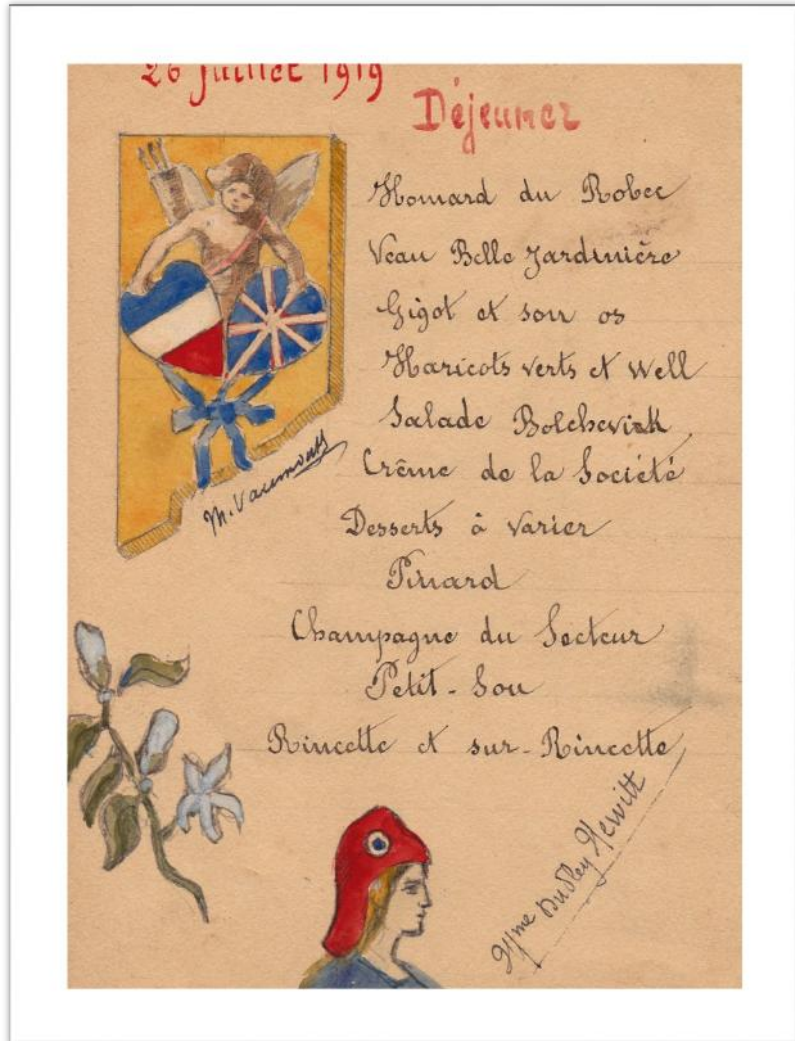 26 Juillet 1919
Déjeuner
Homard du Robec
Veau Belle Jardinière
Gigot et son os
Haricots verts et Well
Salade Bolchevick
Crème de la Société
Desserts à varier
Pinard
Champagne du Secteur
Petit-Sou
Rincette et sur-Rincette
Mme Dudley Hewitt